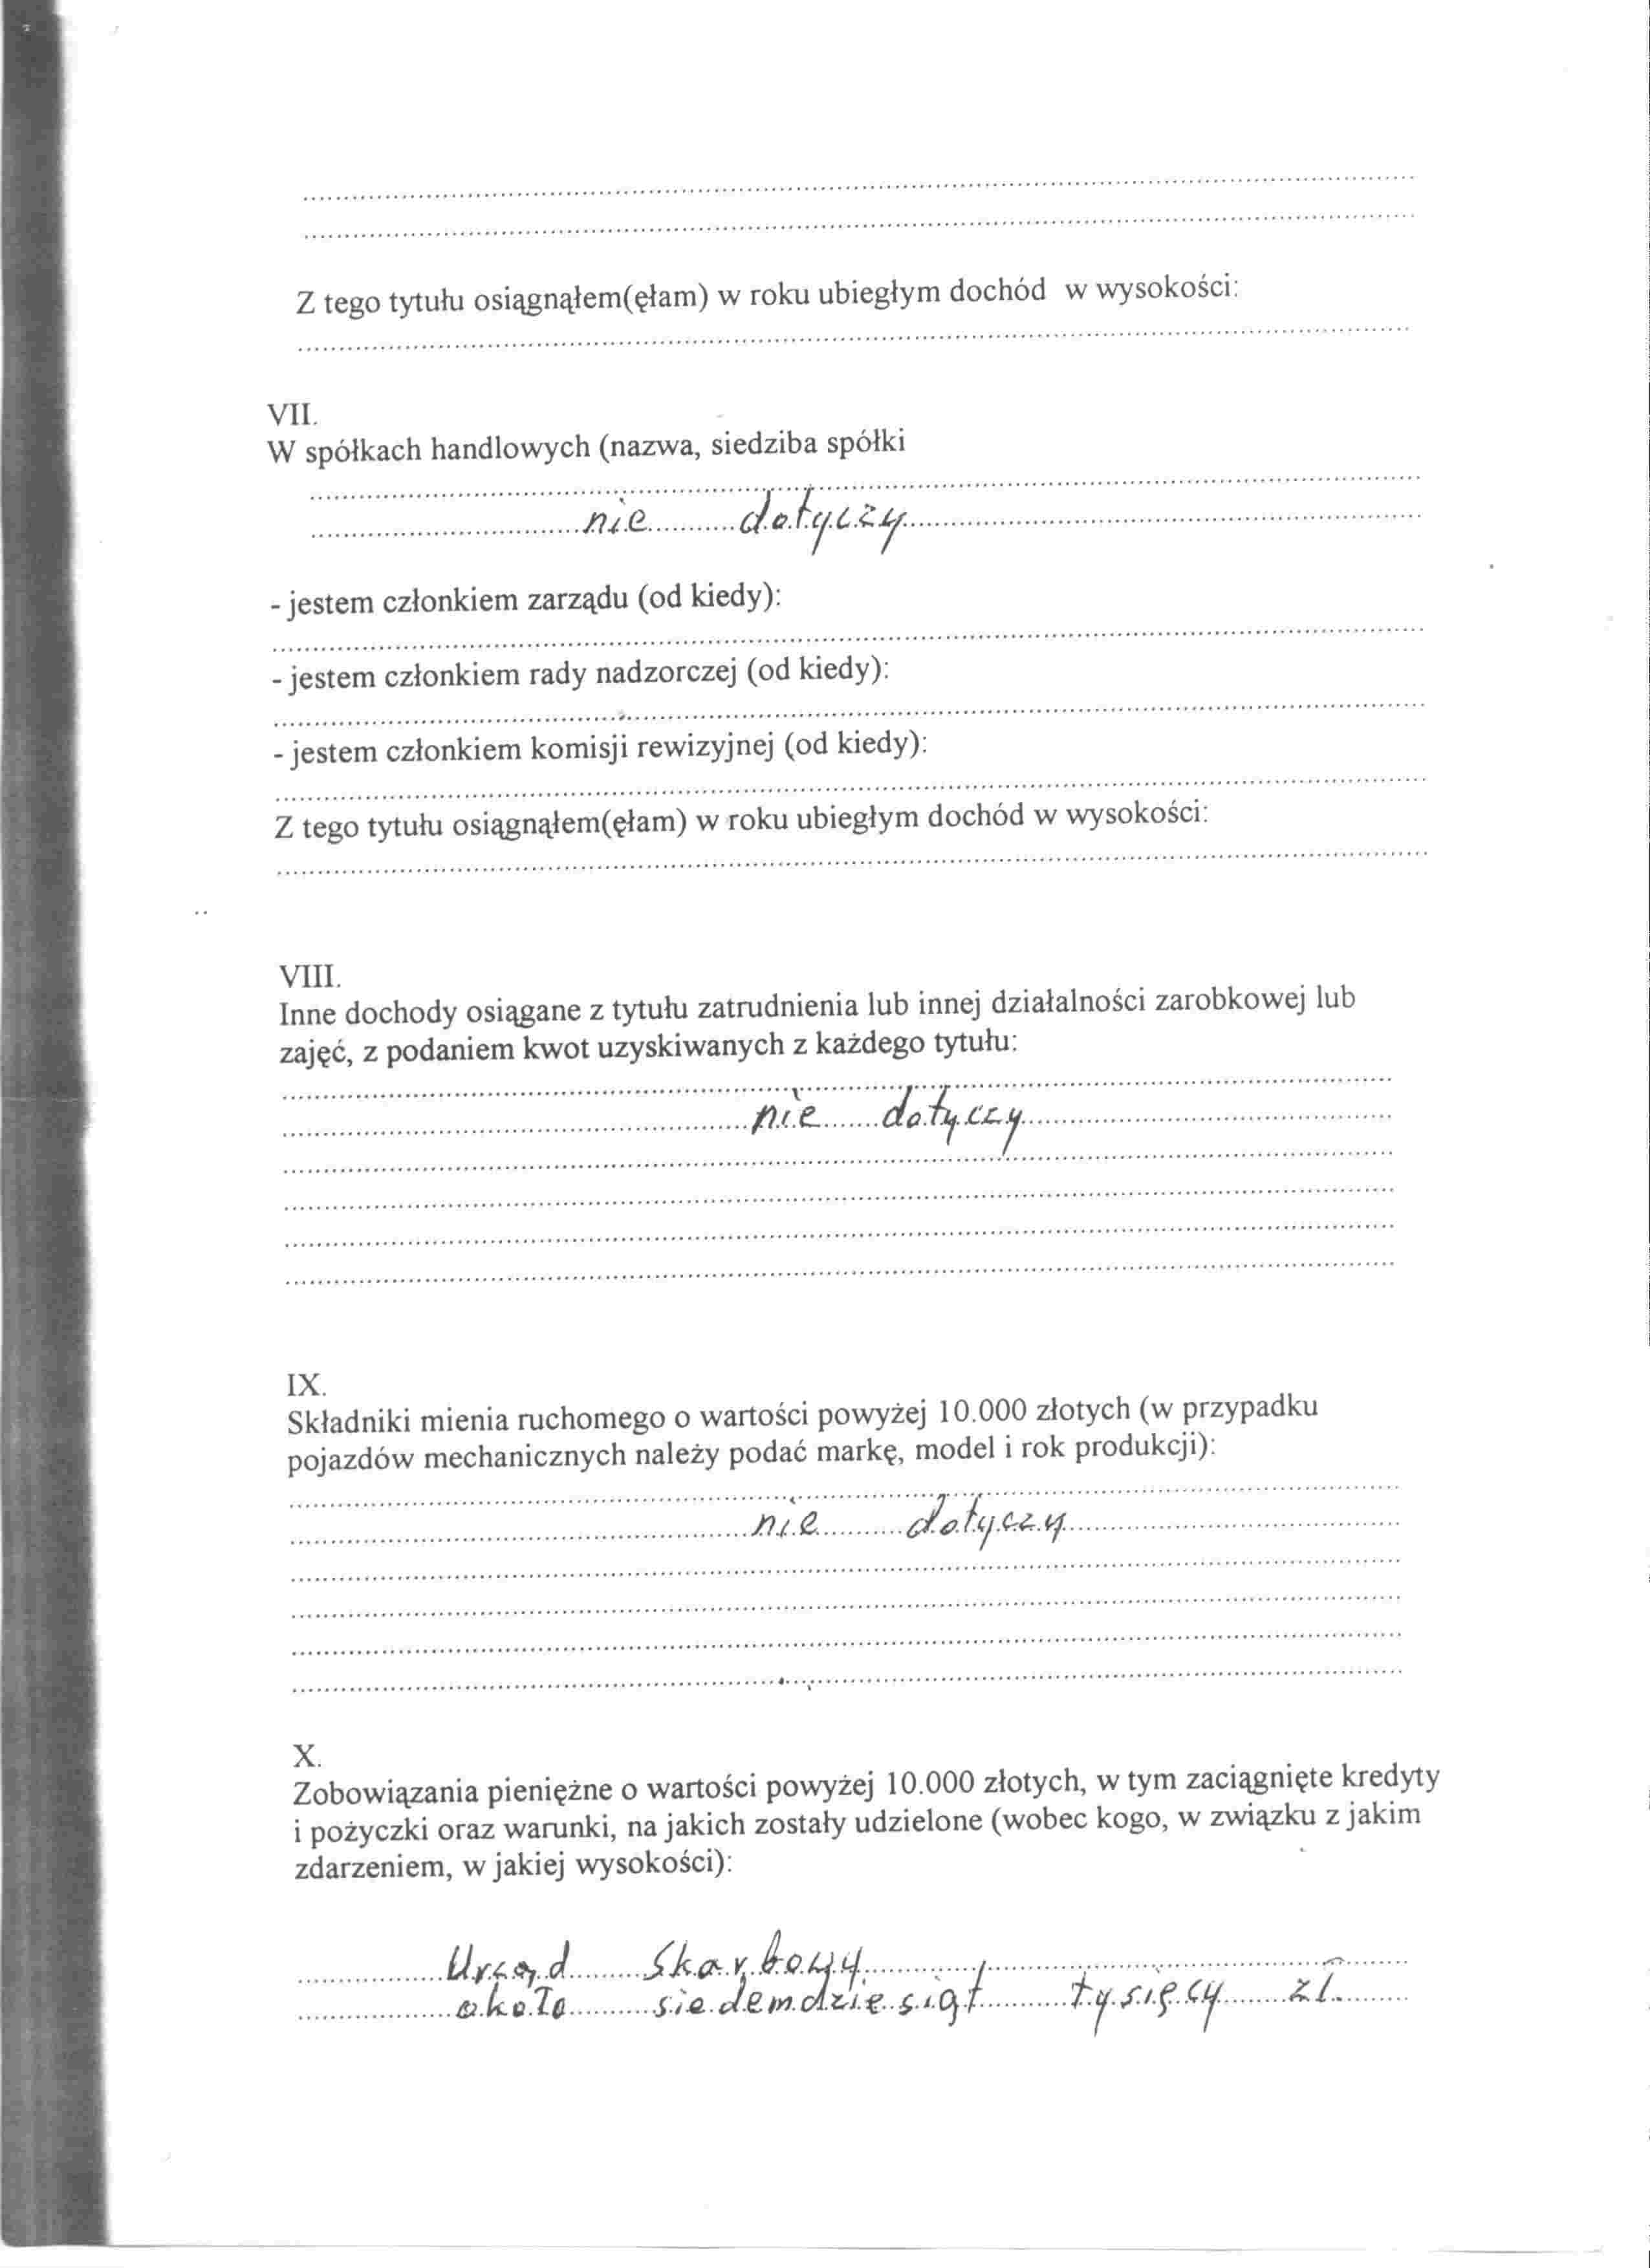 Z tego tytułu osiągnąłem(ęłam) w roku ubiegłym dochód w wysokości:
VII.
W spółkach handlowych (nazwa, siedziba spółki
nie dotyczy
- jestem członkiem zarządu (od kiedy):
- jestem członkiem rady nadzorczej (od kiedy):
- jestem członkiem komisji rewizyjnej (od kiedy):
Z tego tytułu osiągnąłem(ęłam) w roku ubiegłym dochód w wysokości:
VIII.
Inne dochody osiągane z tytułu zatrudnienia lub innej działalności zarobkowej lub
zajęć, z podaniem kwot uzyskiwanych z każdego tytułu:
nie dotyczy
IX.
Składniki mienia ruchomego o wartości powyżej 10.000 złotych (w przypadku
pojazdów mechanicznych należy podać markę, model i rok produkcji):
nie dotyczy
X.
Zobowiązania pieniężne o wartości powyżej 10.000 złotych, w tym zaciągnięte kredyty
i pożyczki oraz warunki, na jakich zostały udzielone (wobec kogo, w związku z jakim
zdarzeniem, w jakiej wysokości):
Urząd Skarbowy
około siedemdziesiąt tysięcy zł.